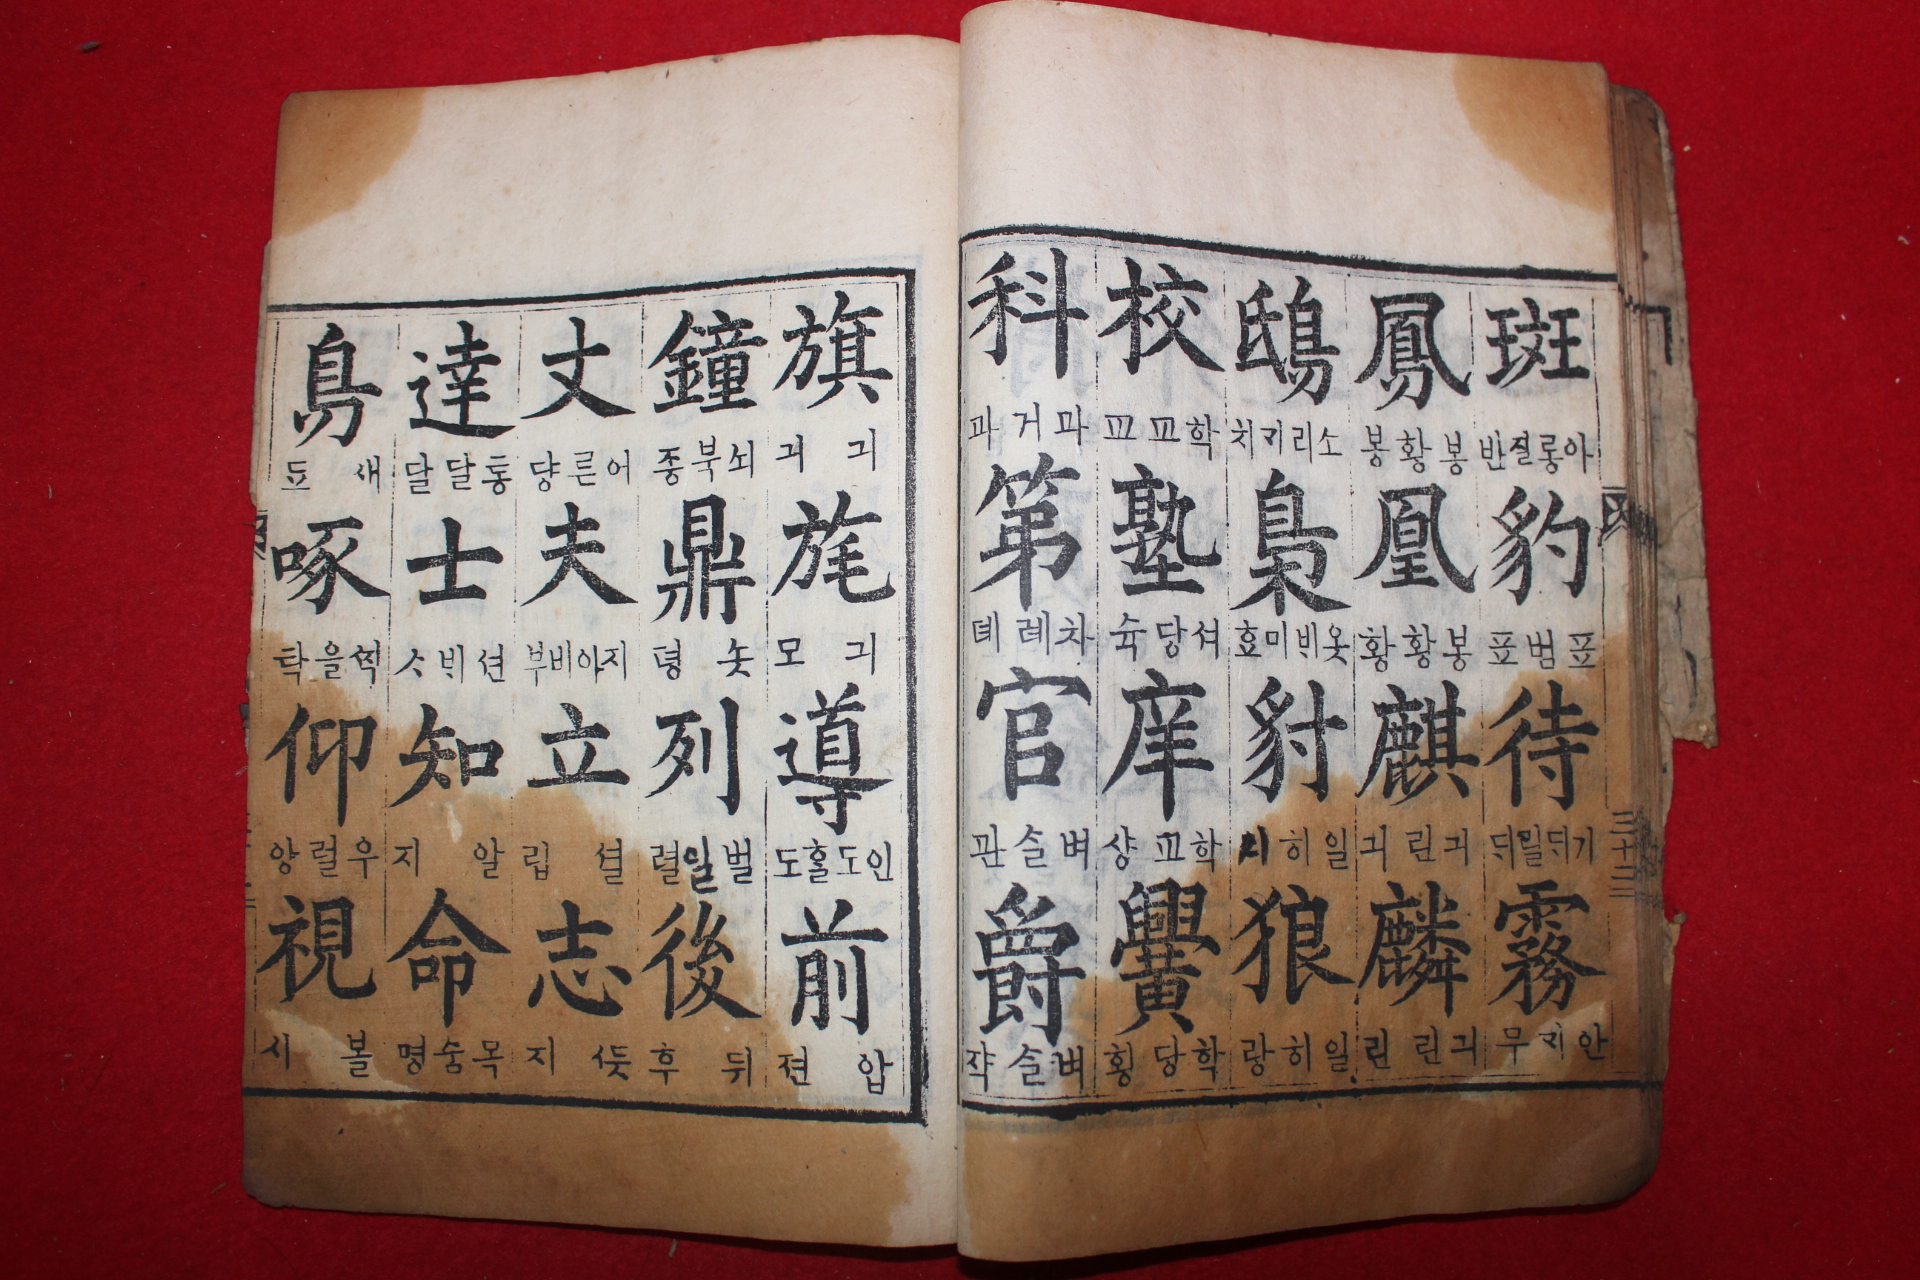 斑 아롱질반 豹 표범표 待 기ᄃᆡ릴ᄃᆡ 霧 안ᄀᆡ무
鳳 봉황봉 凰 봉황황 麒 긔린긔 麟 긔린린
鴟 소리ᄀᆡ치 梟 옷ᄇᆡ미효 豺 일히 狼 일히랑
校 학교교 塾 셔당슉 庠 학교샹 黌 학당횡
科 과거과 第 차례뎨 官 벼슬관 爵 벼슬쟉
旗 긔긔 旄 긔모 導 인도홀도 前 압젼
鐘 쇠북종 鼎 솟뎡 列 벌일렬 後 뒤후
丈 어른댱 夫 지아비부 立 셜립 志 ᄯᅳᆺ지
達 통달달 士 션ᄇᆡᄉᆞ 知 알지 命 목숨명
鳥 새됴 啄 을탁 仰 우럴앙 視 볼시